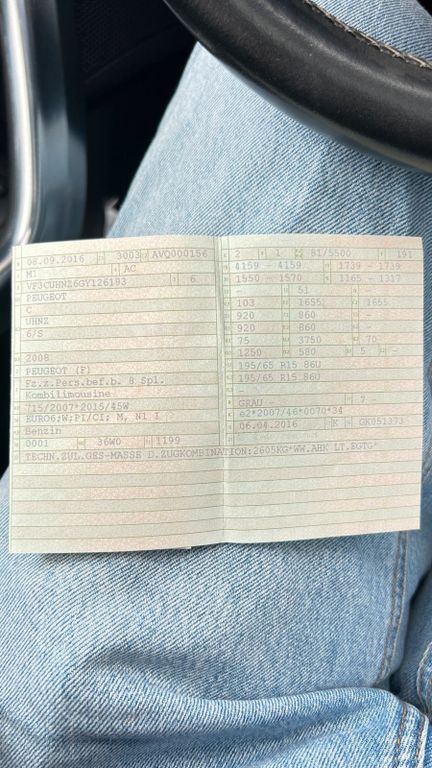 08.09.2016 3003 AVQ000156
M1 AC
VF3CUHNZ6GY126193 6
PEUGEOT
C
UHNZ
6/S
2008
PEUGEOT (F)
Fz.z.Pers.bef.b. 8 Spl.
Kombilimousine
715/2007*2015/45W
EURO6;W;PI/CI; M, N1 I
Benzin
0001 36W0 1199
2 1 81/5500 191
4159 - 4159 1739 - 1739
1550 - 1570 1165 - 1317
- 51 -
103 1655 1655
920 860 -
920 860 -
75 3750 70
1250 580 5 -
195/65 R15 86U
195/65 R15 86U
GRAU - 7
e2*2007/46*0070*34
06.04.2016 K GK051373
TECHN.ZUL.GES-MASSE D.ZUGKOMBINATION:2605KG*WW.AHK LT.EGTG*